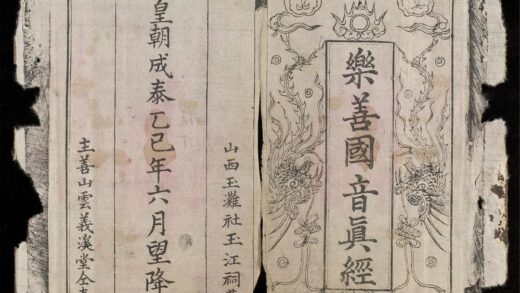 樂善國音眞經
山西玉灘社玉江祠
皇朝成泰乙巳年六月望降
主善山雲義溪堂仝